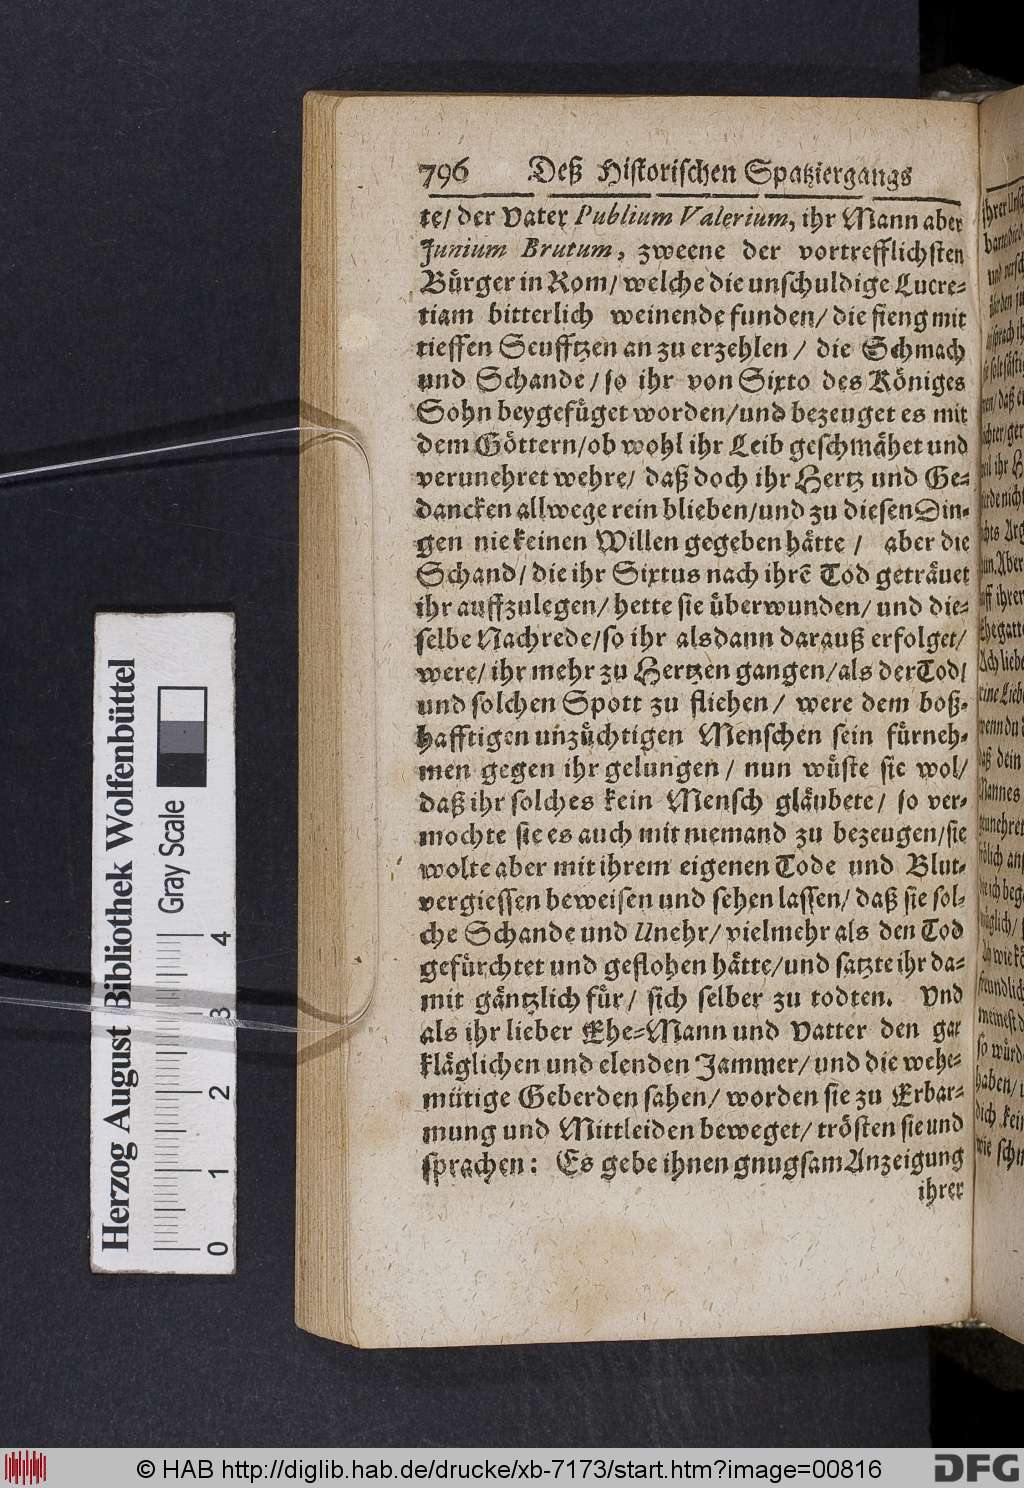 796 Deß Historischen Spatziergangs
te/ der Vater Publium Valerium, ihr Mann aber
Junium Brutum, zweene der vortrefflichsten
Bürger in Rom/ welche die unschuldige Lucre-
tiam bitterlich weinende funden/ die fieng mit
tieffen Seufftzen an zu erzehlen/ die Schmach
und Schande/ so ihr von Sixto des Königes
Sohn beygefüget worden/ und bezeuget es mit
dem Göttern/ ob wohl ihr Leib geschmähet und
verunehret wehre/ daß doch ihr Hertz und Ge-
dancken allwege rein blieben/ und zu diesen Din-
gen nie keinen Willen gegeben hätte/ aber die
Schand/ die ihr Sixtus nach ihrē Tod geträuet
ihr auffzulegen/ hette sie überwunden/ und die-
selbe Nachrede/ so ihr alsdann darauß erfolget/
were/ ihr mehr zu Hertzen gangen/ als der Tod/
und solchen Spott zu fliehen/ were dem boß-
hafftigen unzüchtigen Menschen sein fürneh-
men gegen ihr gelungen/ nun wüste sie wol/
daß ihr solches kein Mensch gläubete/ so ver-
mochte sie es auch mit niemand zu bezeugen/ sie
wolte aber mit ihrem eigenen Tode und Blut-
vergiessen beweisen und sehen lassen/ daß sie sol-
che Schande und Unehr/ vielmehr als den Tod
gefürchtet und geflohen hätte/ und satzte ihr da-
mit gäntzlich für/ sich selber zu todten. Und
als ihr lieber Ehe-Mann und Vatter den gar
kläglichen und elenden Jammer/ und die wehe-
mütige Geberden sahen/ worden sie zu Erbar-
mung und Mittleiden beweget/ trösten sie und
sprachen: Es gebe ihnen gnugsam Anzeigung
ihrer
Herzog August Bibliothek Wolfenbüttel
Gray Scale
0 1 2 3 4
© HAB http://diglib.hab.de/drucke/xb-7173/start.htm?image=00816
DFG